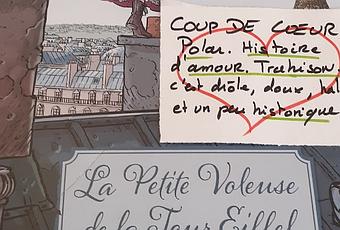 COUP DE CŒUR
Polar. Histoire
d'amour. Trahison
c'est drôle, doux,
et un peu historique
La Petite Voleuse
de la Tour Eiffel